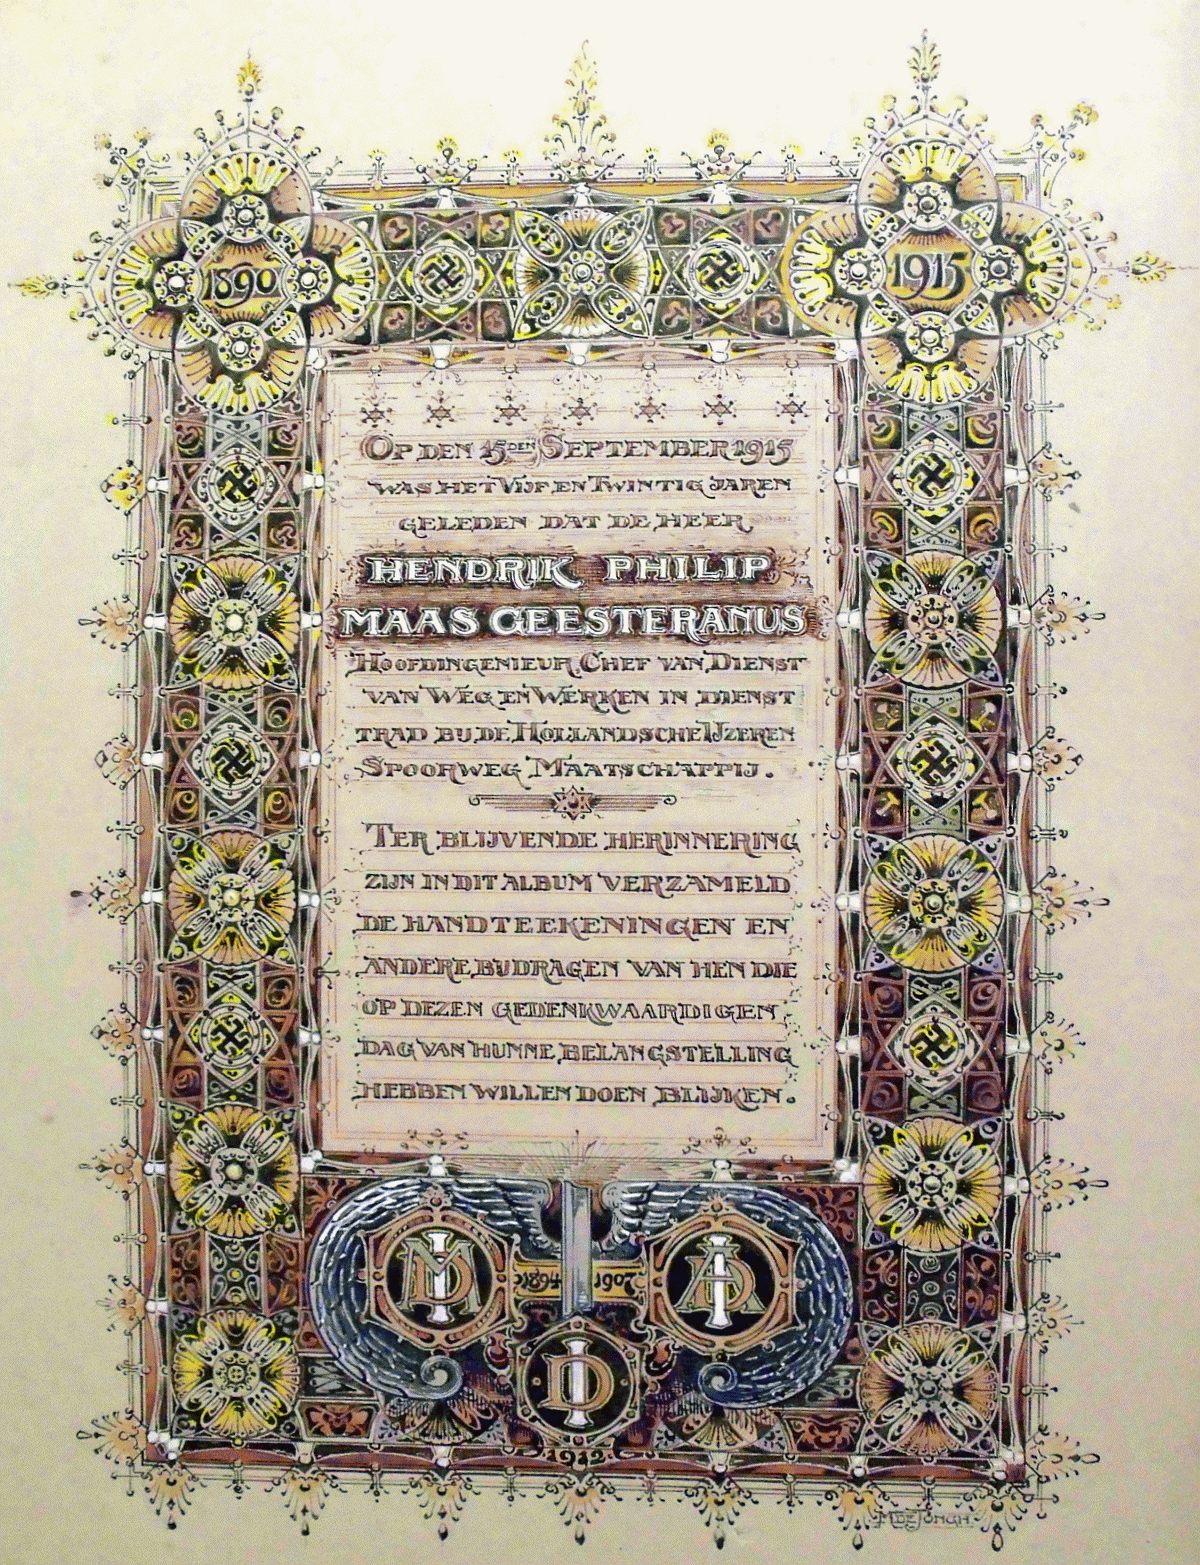 1890
1915
OP DEN 15DEN SEPTEMBER 1915
WAS HET VIJF EN TWINTIG JAREN
GELEDEN DAT DE HEER
HENDRIK PHILIP
MAAS GEESTERANUS
HOOFDINGENIEUR, CHEF VAN DIENST
VAN WEG EN WERKEN IN DIENST
TRAD BIJ DE HOLLANDSCHE IJZEREN
SPOORWEG MAATSCHAPPIJ.
TER BLIJVENDE HERINNERING
ZIJN IN DIT ALBUM VERZAMELD
DE HANDTEEKENINGEN EN
ANDERE BIJDRAGEN VAN HEN DIE
OP DEZEN GEDENKWAARDIGEN
DAG VAN HUNNE BELANGSTELLING
HEBBEN WILLEN DOEN BLIJKEN.
1894 1907
1912
M DE JONGH.